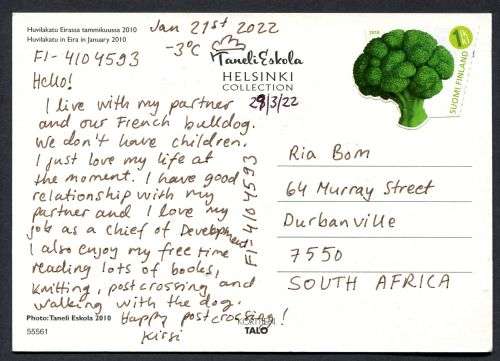 Huvilakatu Eirassa tammikuussa 2010
Huvilakatu in Eira in January 2010
Jan 21st 2022
-3°C
FI-4104593
Taneli Eskola
HELSINKI
COLLECTION
28/3/22
2010
1 LK KL
SUOMI FINLAND
Hello!
I live with my partner
and our French bulldog.
We don't have children.
I just love my life at
the moment. I have good
relationship with my
partner and I love my
job as a Chief of Development
I also enjoy my free time
reading lots of books,
knitting, postcrossing and
walking with the dog.
Happy postcrossing!
Kirsi
FI-4104593
Ria Bom
64 Murray Street
Durbanville
7550
SOUTH AFRICA
Photo: Taneli Eskola 2010
55561
KORTTIEN
TALO